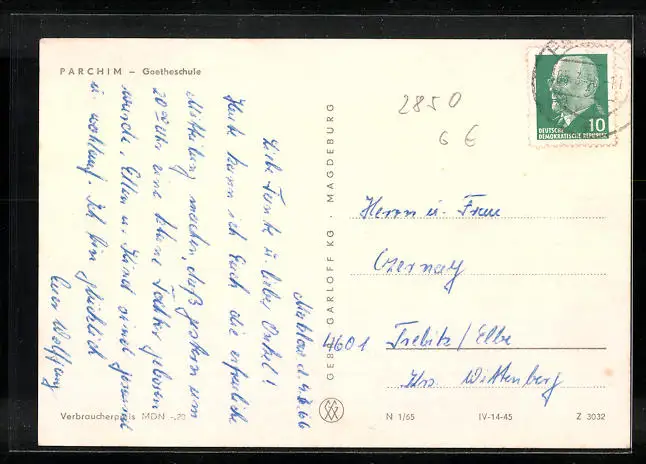 PARCHIM – Goetheschule
d. 4.2.66
Liebe Tante u. lieber Onkel!
Heute kann ich Euch die erfreuliche
Mitteilung machen, daß gestern um
20 Uhr eine kleine Tochter geboren
wurde. Ellen u. Kind sind gesund
u. wohlauf. Ich bin glücklich
Euer Wolfgang
Verbraucherpreis MDN -,20
GEBR. GARLOFF KG · MAGDEBURG
2850
6 €
DEUTSCHE
DEMOKRATISCHE REPUBLIK
10
Herrn u. Frau
Czernay
4601 Trebitz/Elbe
Krs. Wittenberg
N 1/65
IV-14-45
Z 3032